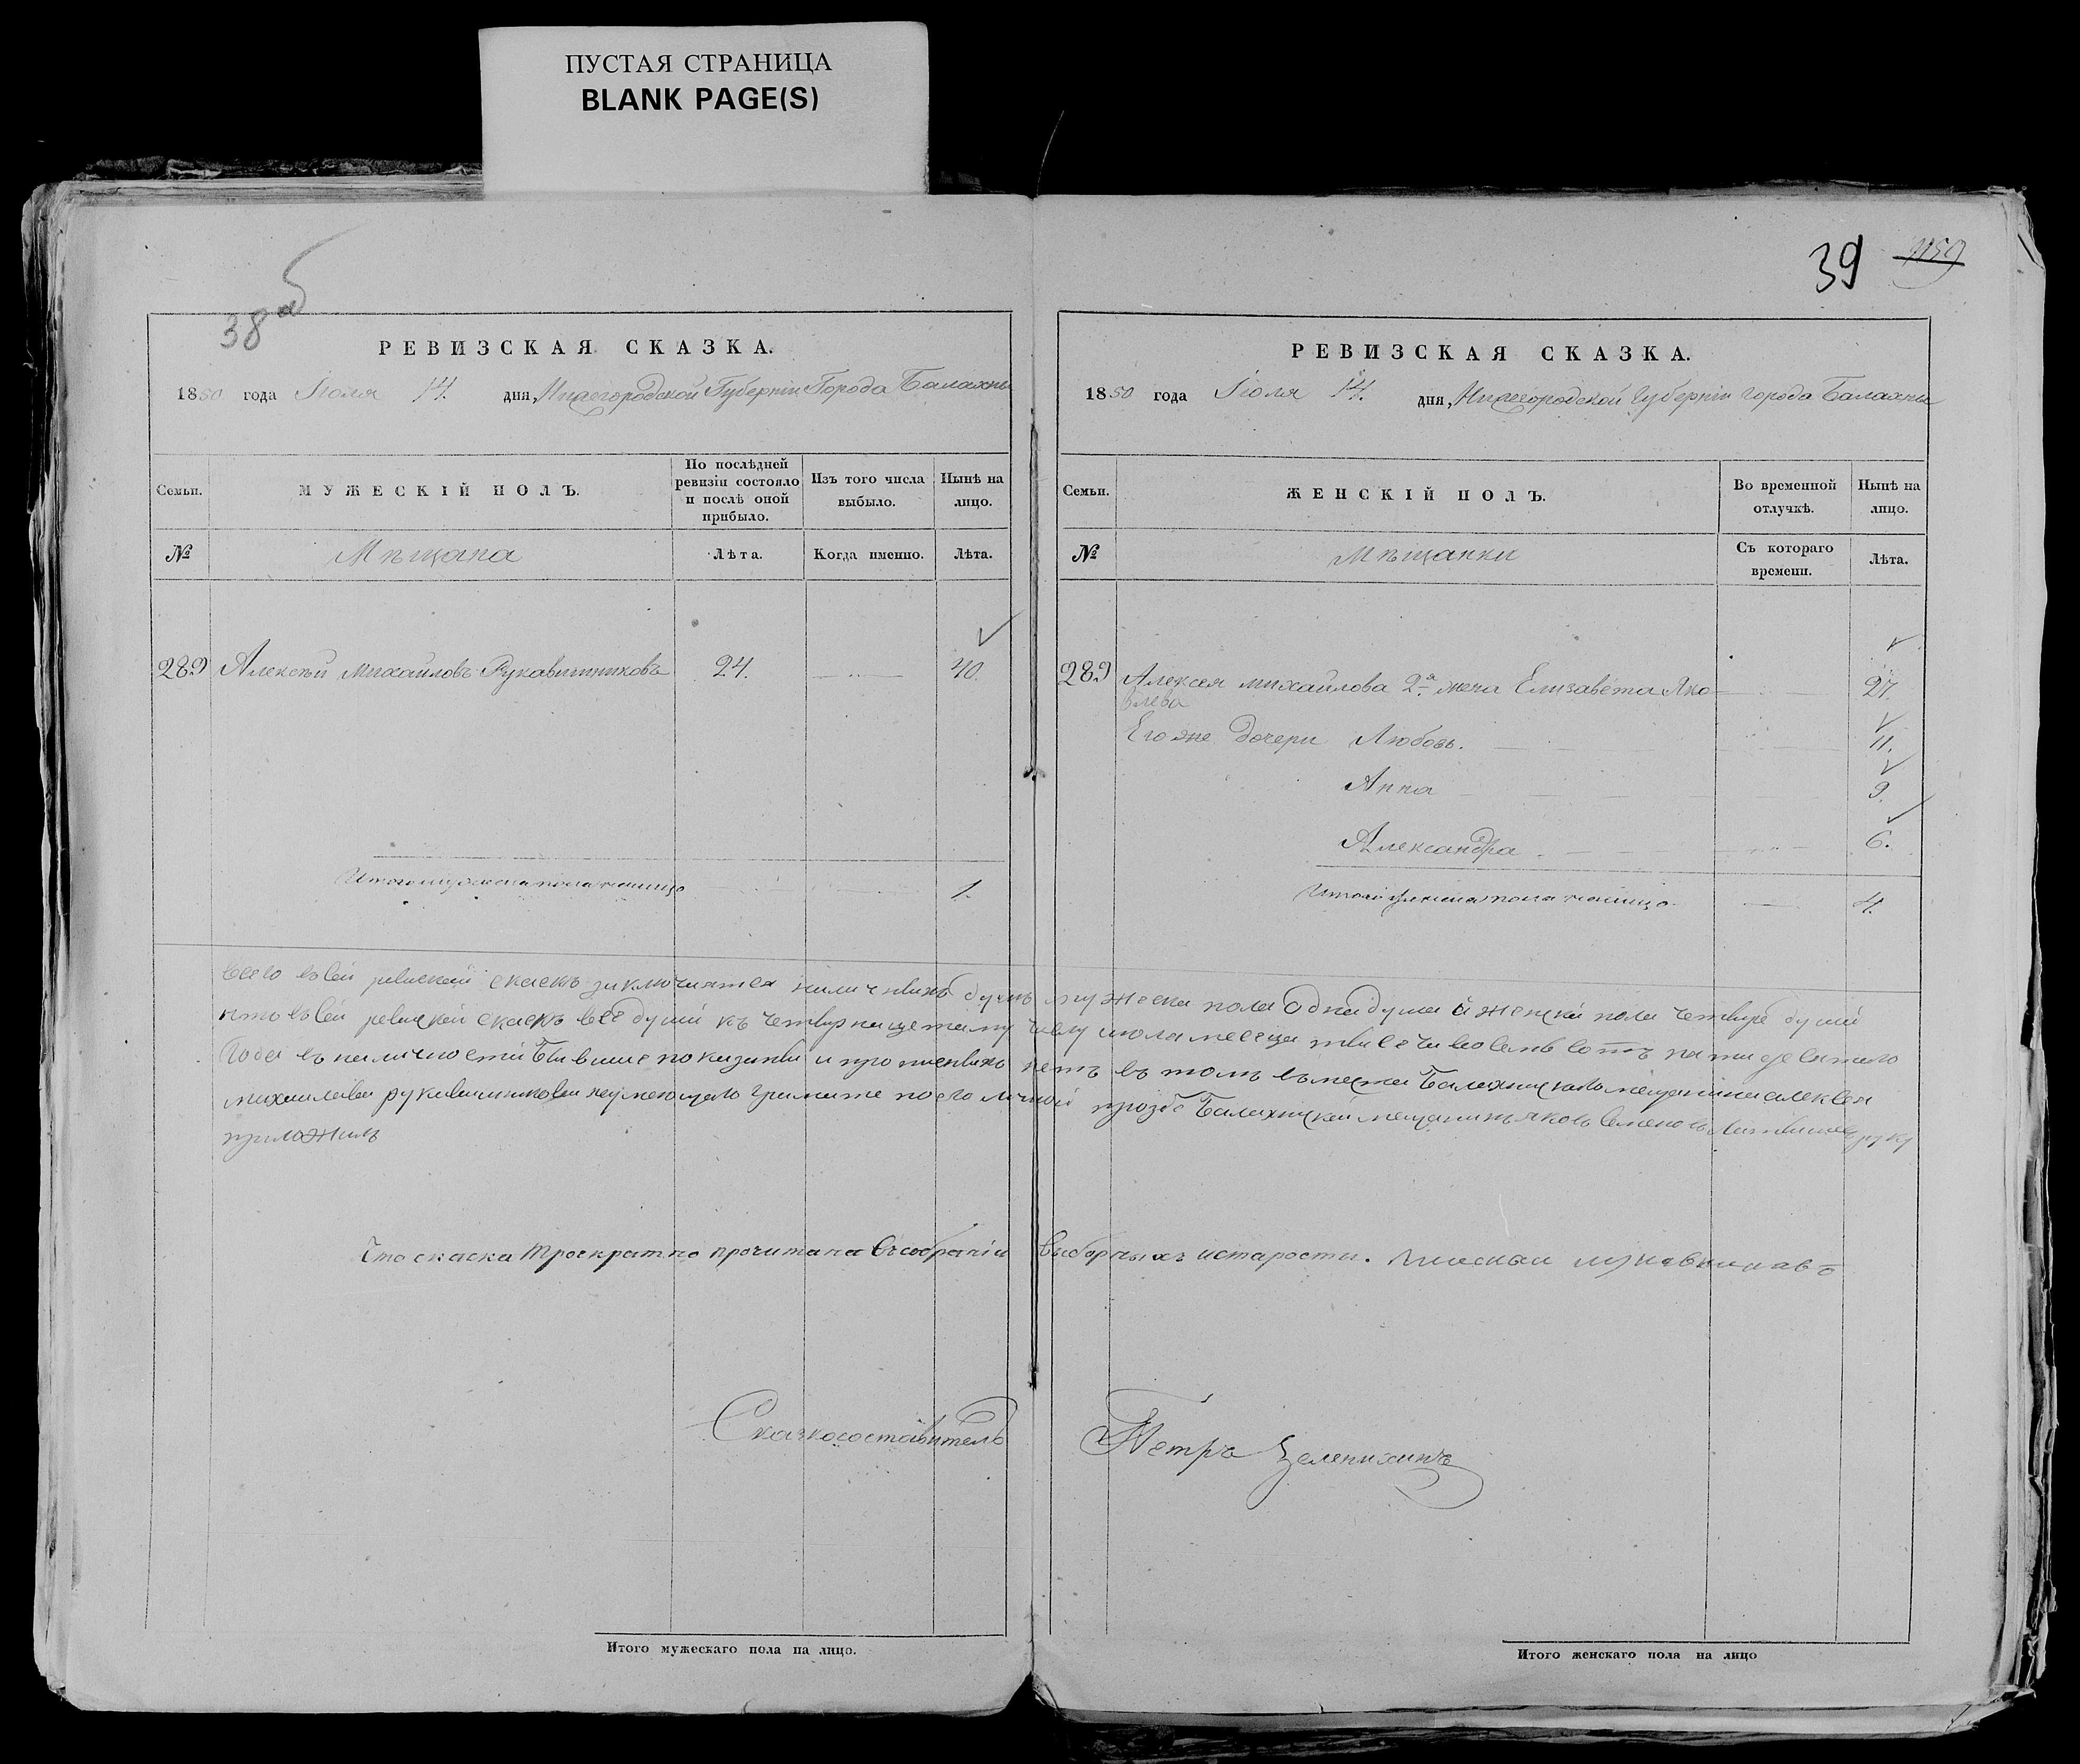 ПУСТАЯ СТРАНИЦА
BLANK PAGE(S)
38 об
РЕВИЗСКАЯ СКАЗКА.
1850 года Іюля 14. дня, Нижегородской Губерніи Города Балахны
Семьи.
МУЖЕСКІЙ ПОЛЪ.
По послѣдней ревизіи состояло и послѣ оной прибыло.
Изъ того числа выбыло.
Нынѣ на лицо.
№
Мѣщана
Лѣта.
Когда именно.
Лѣта.
289 Алексѣй Михайловъ Рукавишниковъ 24. — „ — 40.
Итого мужеска пола налицо 1.
39 1159
РЕВИЗСКАЯ СКАЗКА.
1850 года Іюля 14. дня, Нижегородской Губерніи города Балахны
Семьи.
ЖЕНСКІЙ ПОЛЪ.
Во временной отлучкѣ.
Нынѣ на лицо.
№
Мѣщанки
Съ котораго времени.
Лѣта.
289 Алексея Михайлова 2я жена Елизавета Яко- 27.
влева
Его же дочери Любовь. 11.
Анна 9.
Александра 6.
Итого женска пола налицо 4.
Всего в сей ревиской скаскѣ заключаятся наличнвихъ душъ мужеска пола одна душа и женска пола четвире души
что в сей ревиской скаскѣ все души къ четвирнацетаму числу июла месеца твисеча восемь сотъ патидеватаго
года въ наличности бывшие показаны и прописнвихъ нетъ въ томъ вместа Балахнискаго мещанина алексея
михаилава рукавишникова неумеющаго грамате по его личнай прозбе Балахниской мещанинъ яковъ Семеновъ руку
приложилъ
Что скаска троекратно прочитана въ собраніи выборныхъ и старости.
Сказкосоставитель Петръ Зеленихинъ
Итого мужескаго пола на лицо.
Итого женскаго пола на лицо